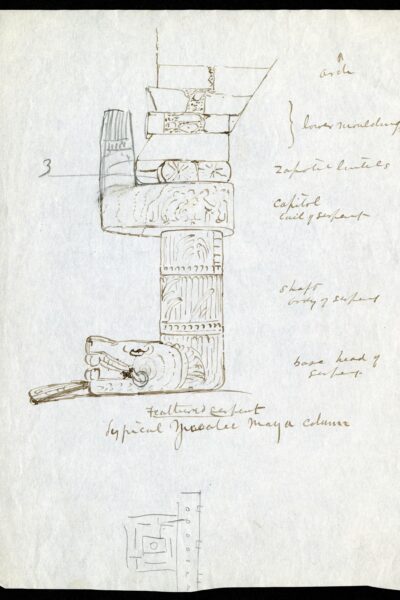 arch
lower mouldings
3
lintels
capitol
tail of serpent
shaft
body of serpent
base head of
serpent
Feathered serpent
typical Yucatec Maya column